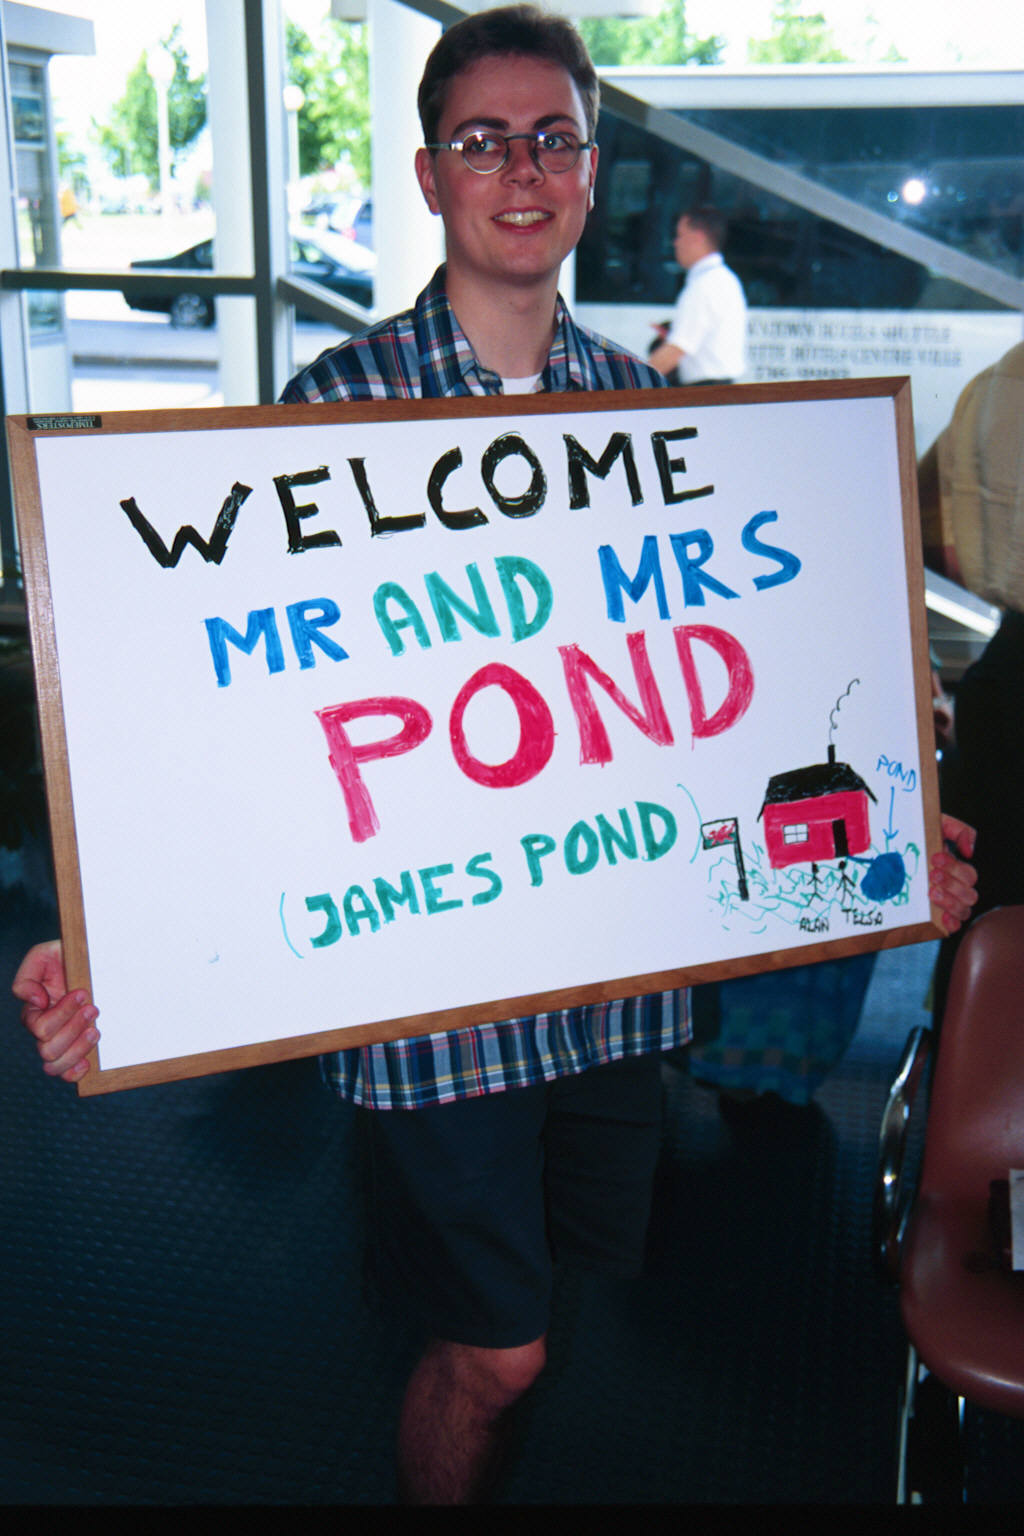 TIMEPOSTERS
WELCOME
MR AND MRS
POND
(JAMES POND)
POND
ALAN
HOTELS SHUTTLE
HOTELS CENTRE-VILLE